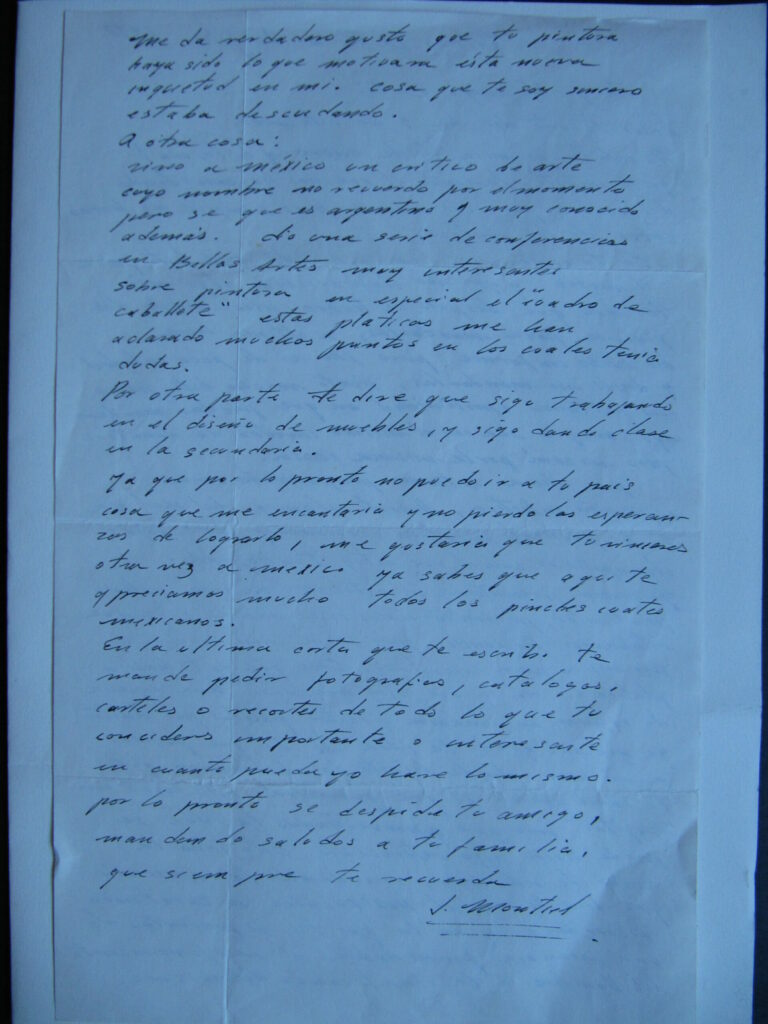 me da verdadero gusto que tu pintura
haya sido lo que motivara ésta nueva
inquietud en mi. cosa que te soy sincero
estaba descuidando.
A otra cosa:
vino a méxico un critico de arte
cuyo nombre no recuerdo por el momento
pero se que es argentino y muy conocido
además. dio una serie de conferencias
en Bellas Artes muy interesantes
sobre pintura en especial el "cuadro de
caballete" estas platicas me han
aclarado muchos puntos en los cuales tenia
dudas.
Por otra parte te dire que sigo trabajando
en el diseño de muebles, y sigo dando clase
en la secundaria.
Ya que por lo pronto no puedo ir a tu pais
cosa que me encantaria y no pierdo las esperan-
zas de lograrlo, me gustaria que tu vinieras
otra vez a mexico ya sabes que aqui te
apreciamos mucho todos los pinches cuates
mexicanos.
En la ultima carta que te escribi te
mande pedir fotografias, catalogos,
carteles o recortes de todo lo que tu
concideres importante o interesante
en cuanto pueda yo hare lo mismo.
por lo pronto se despide tu amigo,
mandando saludos a tu familia,
que siempre te recuerda
J. Montiel